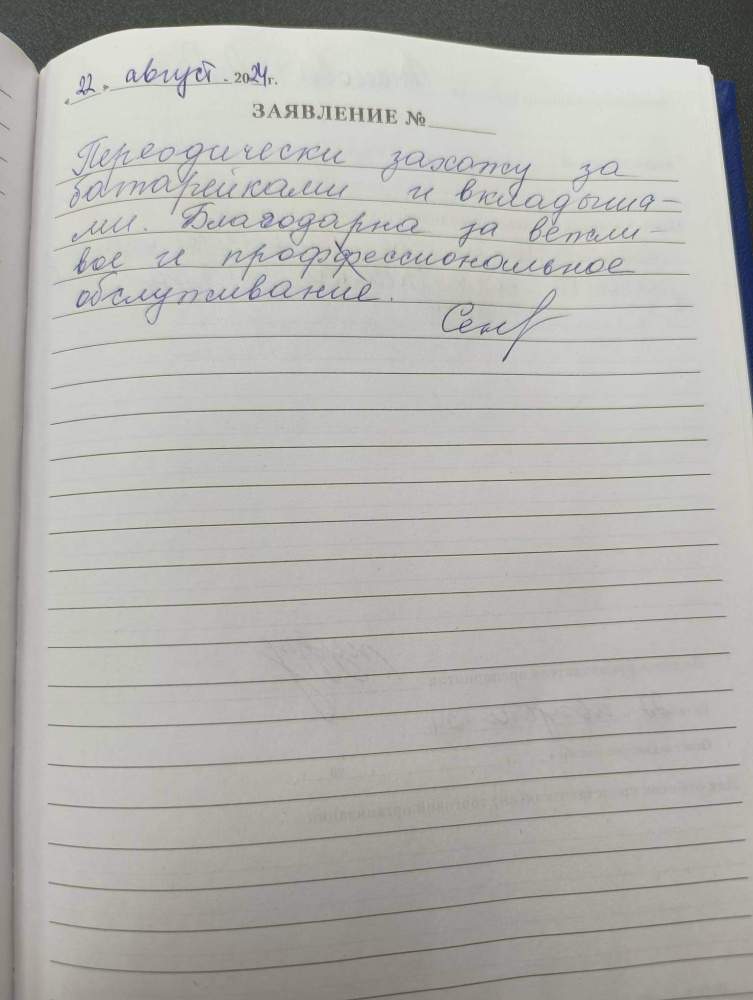 « 22 » август 2024 г.
ЗАЯВЛЕНИЕ №
Переодически захожу за
батарейками и вкладыша-
ми. Благодарна за вежли-
вое и профессиональное
обслуживание.